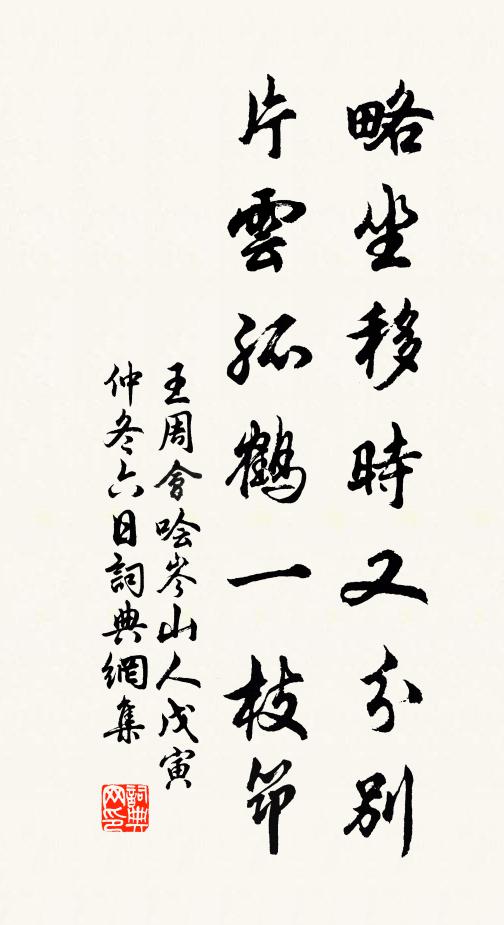 略坐移時又分別
片雲孤鶴一枝笻
王周會哙岑山人戊寅
仲冬六日詞典網集
詞典网印